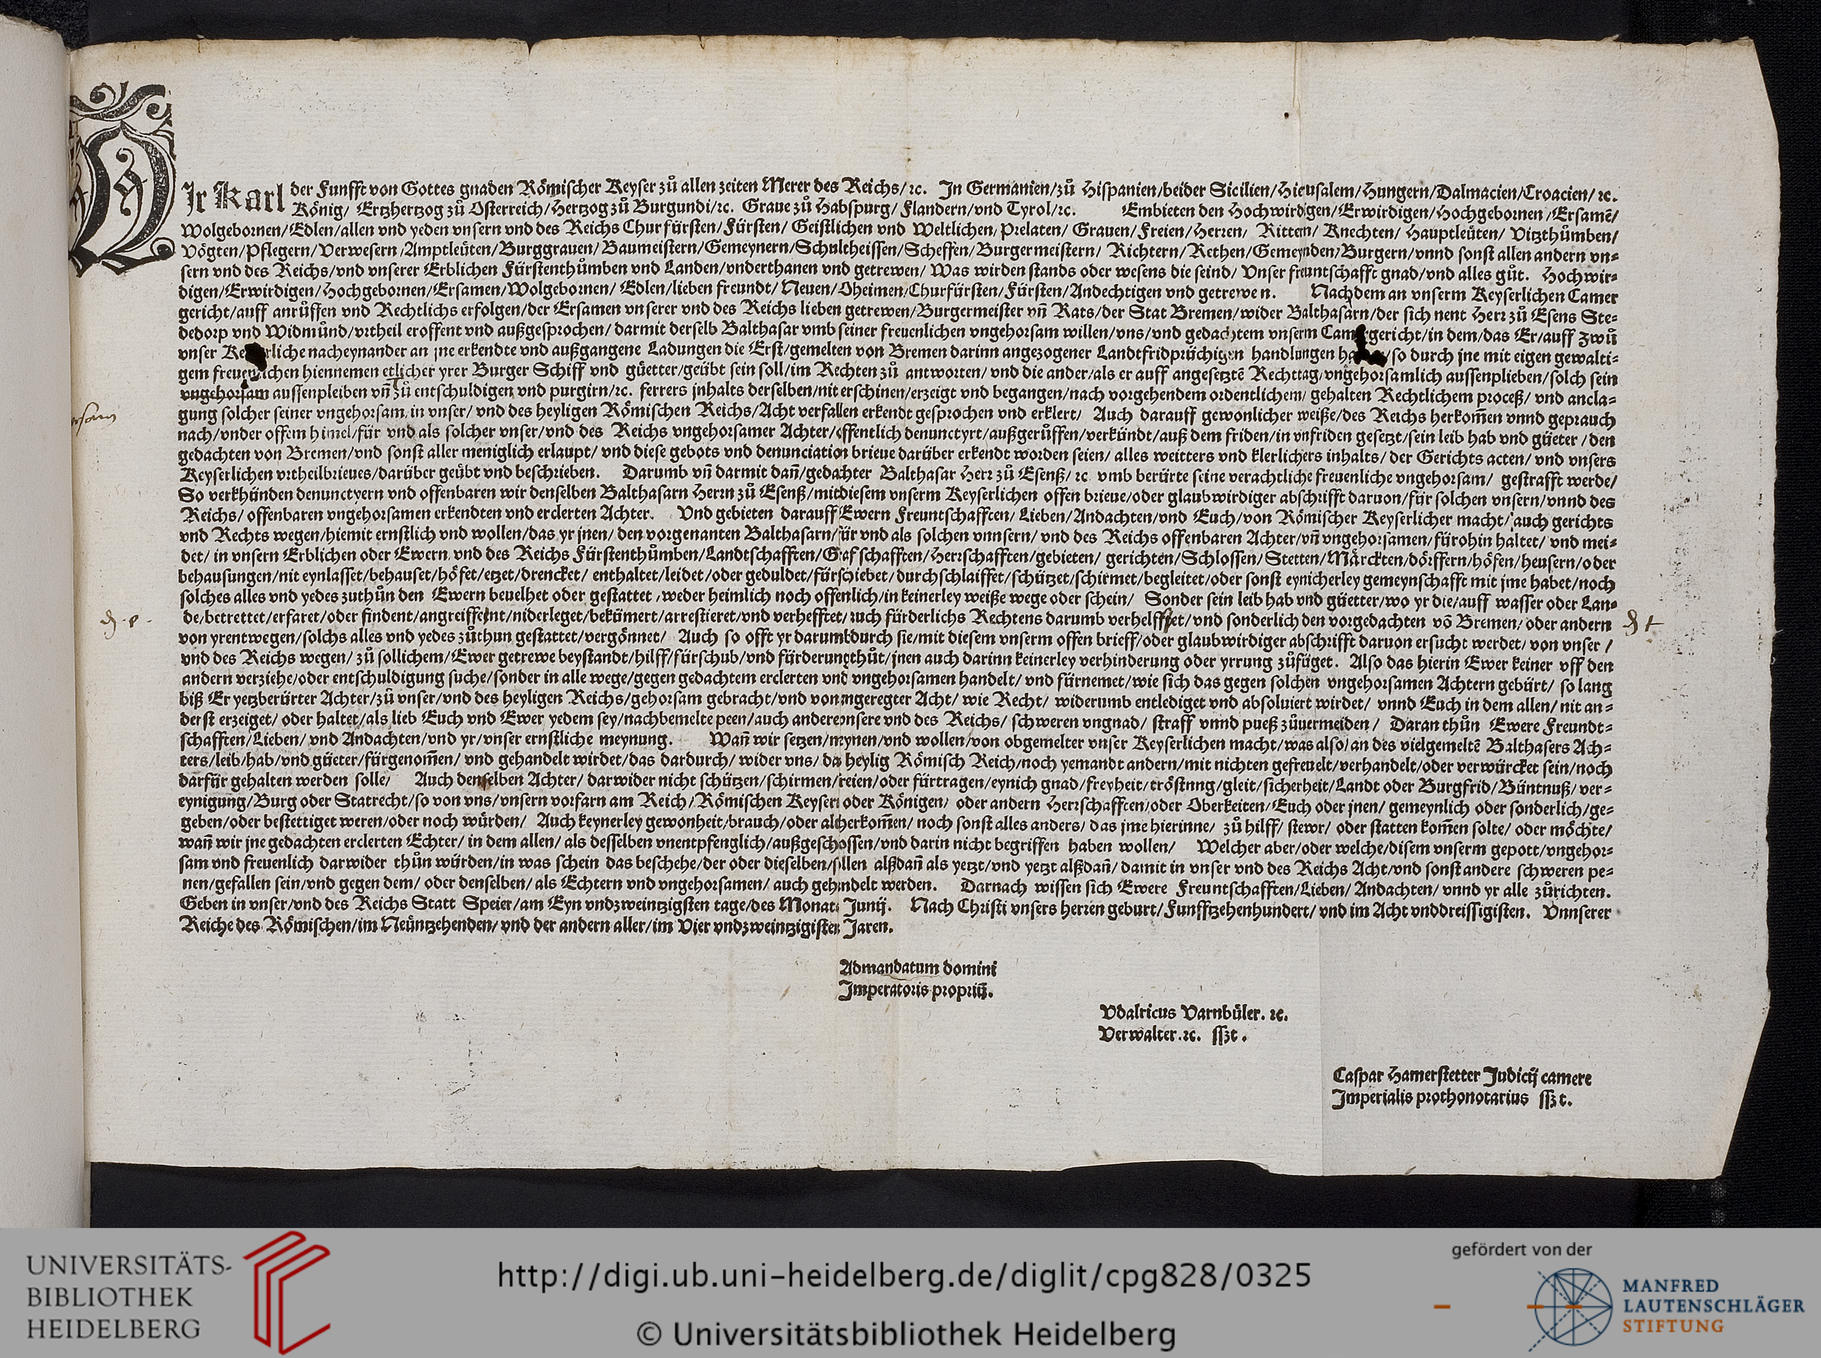 WIr Karl der Funfft von Gottes gnaden Römischer Keyser zů allen zeiten Merer des Reichs/ ꝛc. In Germanien/ zů Hispanien/ beider Sicilien/ Hierusalem/ Hungern/ Dalmacien/ Croacien/ ꝛc.
König/ Ertzhertzog zů Osterreich/ Hertzog zů Burgundi/ ꝛc. Graue zů Habspurg/ Flandern/ vnd Tyrol/ ꝛc. Embieten den Hochwirdigen/ Erwirdigen/ Hochgebornen/ Ersamē/
Wolgebornen/ Edlen/ allen vnd yeden vnsern vnd des Reichs Churfürsten/ Fürsten/ Geistlichen vnd Weltlichen/ Prelaten/ Grauen/ Freien/ Herren/ Rittern/ Knechten/ Hauptleüten/ Vitzthůmben/
Vögten/ Pflegern/ Verwesern/ Amptleüten/ Burggrauen/ Baumeistern/ Gemeynern/ Schultheissen/ Scheffen/ Burgermeistern/ Richtern/ Rethen/ Gemeynden/ Burgern/ vnnd sonst allen andern vn=
sern vnd des Reichs/ vnd vnserer Erblichen Fürstenthůmben vnd Landen/ vnderthanen vnd getrewen/ Was wirden stands oder wesens die seind/ Vnser freuntschafft gnad/ vnd alles gůt. Hochwir=
digen/ Erwirdigen/ Hochgebornen/ Ersamen/ Wolgebornen/ Edlen/ lieben freundt/ Neuen/ Oheimen/ Churfürsten/ Fürsten/ Andechtigen vnd getrewen. Nachdem an vnserm Keyserlichen Camer
gericht/ auff anrůffen vnd Rechtlichs erfolgen/ der Ersamen vnserer vnd des Reichs lieben getrewen/ Burgermeister vn̄ Rats/ der Stat Bremen/ wider Balthasarn/ der sich nent Herr zů Esens Ste=
dedorp vnd Widmůnd/ vrtheil eroffent vnd außgesprochen/ darmit derselb Balthasar vmb seiner freuenlichen vngehorsam willen/ vns/ vnd gedachtem vnserm Camergericht/ in dem/ das Er/ auff zwů
vnser nacheynander an jne erkendte vnd außgangene Ladungen die Erst/ gemelten von Bremen darinn angezogener Landtfridprüchigen handlungen so durch jne mit eigen gewalti=
gem hiennemen etlicher yrer Burger Schiff vnd güetter/ geübt sein soll/ im Rechten zů antworten/ vnd die ander/ als er auff angesetztē Rechttag/ vngehorsamlich aussenplieben/ solch sein
vngehorsam aussenpleiben vn̄ zů entschuldigen vnd purgirn/ ꝛc. ferrers jnhalts derselben/ nit erschinen/ erzeigt vnd begangen/ nach vorgehendem ordentlichem/ gehalten Rechtlichem proceß/ vnd ancla=
gung solcher seiner vngehorsam, in vnser/ vnd des heyligen Römischen Reichs/ Acht verfallen erkendt gesprochen vnd erklert/ Auch darauff gewonlicher weiße/ des Reichs herkom̄en vnnd geprauch
nach/ vnder offem himel/ für vnd als solcher vnser/ vnd des Reichs vngehorsamer Achter/ offentlich denunctyrt/ außgerůffen/ verkündt/ auß dem friden/ in vnfriden gesetzt/ sein leib hab vnd güeter/ den
gedachten von Bremen/ vnd sonst aller meniglich erlaupt/ vnd diese gebots vnd denunciation brieue darüber erkendt worden seien/ alles weitters vnd klerlichers inhalts/ der Gerichts acten/ vnd vnsers
Keyserlichen vrtheilbrieues/ darüber geübt vnd beschrieben. Darumb vn̄ darmit dan̄/ gedachter Balthasar Herr zů Esenß/ ꝛc vmb berürte seine verachtliche freuenliche vngehorsam/ gestrafft werde/
So verkhünden denunctyern vnd offenbaren wir denselben Balthasarn Herrn zů Esenß/ mit diesem vnserm Keyserlichen offen brieue/ oder glaubwirdiger abschrifft daruon/ für solchen vnsern/ vnnd des
Reichs/ offenbaren vngehorsamen erkendten vnd erclerten Achter. Vnd gebieten darauff Ewern Freuntschafften/ Lieben/ Andachten/ vnd Euch/ von Römischer Keyserlicher macht/ auch gerichts
vnd Rechts wegen/ hiemit ernstlich vnd wollen/ das yr jnen/ den vorgenanten Balthasarn/ für vnd als solchen vnnsern/ vnd des Reichs offenbaren Achter/ vn̄ vngehorsamen/ fürohin haltet/ vnd mei=
det/ in vnsern Erblichen oder Ewern vnd des Reichs Fürstenthůmben/ Landtschafften/ Grafschafften/ Herrschafften/ gebieten/ gerichten/ Schlossen/ Stetten/ Märckten/ dörffern/ höfen/ heusern/ oder
behausungen/ nit eynlasset/ behauset/ höfet/ etzet/ drencket/ enthaltet/ leidet/ oder geduldet/ fürschiebet/ durchschlaiffet/ schützet/ schirmet/ begleitet/ oder sonst eynicherley gemeynschafft mit jme habet/ noch
solches alles vnd yedes zuthůn den Ewern beuelhet oder gestattet/ weder heimlich noch offenlich/ in keinerley weiße wege oder schein/ Sonder sein leib hab vnd güetter/ wo yr die/ auff wasser oder Lan=
de/ betrettet/ erfaret/ oder findent/ angreiffent/ niderleget/ bekümert/ arrestieret/ vnd verhefftet/ auch fürderlichs Rechtens darumb verhelffet/ vnd sonderlich den vorgedachten vō Bremen/ oder andern
von yrentwegen/ solchs alles vnd yedes zůthun gestattet/ vergönnet/ Auch so offt yr darumb durch sie/ mit diesem vnserm offen brieff/ oder glaubwirdiger abschrifft daruon ersucht werdet/ von vnser/
vnd des Reichs wegen/ zů sollichem/ Ewer getrewe beystandt/ hilff/ fürschub/ vnd fürderung thůt/ jnen auch darinn keinerley verhinderung oder yrrung zůfüget. Also das hierin Ewer keiner vff den
andern verziehe/ oder entschuldigung suche/ sonder in alle wege/ gegen gedachtem erclerten vnd vngehorsamen handelt/ vnd fürnemet/ wie sich das gegen solchen vngehorsamen Achtern gebürt/ so lang
biß Er yetzberürter Achter/ zů vnser/ vnd des heyligen Reichs/ gehorsam gebracht/ vnd von angeregter Acht/ wie Recht/ widerumb entlediget vnd absoluiert wirdet/ vnnd Euch in dem allen/ nit an=
derst erzeiget/ oder haltet/ als lieb Euch vnd Ewer yedem sey/ nachbemelte peen/ auch andere vnsere vnd des Reichs/ schweren vngnad/ straff vnnd pueß zůuermeiden/ Daran thůn Ewere Freundt=
schafften/ Lieben/ vnd Andachten/ vnd yr/ vnser ernstliche meynung. Wan̄ wir setzen/ meynen/ vnd wollen/ von obgemelter vnser Keyserlichen macht/ was also/ an des vielgemeltē Balthasers Ach=
ters/ leib/ hab/ vnd güeter/ fürgenom̄en/ vnd gehandelt wirdet/ das dardurch/ wider vns/ das heylig Römisch Reich/ noch yemandt andern/ mit nichten gefreuelt/ verhandelt/ oder verwürcket sein/ noch
darfür gehalten werden solle/ Auch denselben Achter/ darwider nicht schützen/ schirmen/ freien/ oder fürtragen/ eynich gnad/ freyheit/ tröstnng/ gleit/ sicherheit/ Landt oder Burgfrid/ Büntnuß/ ver=
eynigung/ Burg oder Statrecht/ so von vns/ vnsern vorfarn am Reich/ Römischen Keysern oder Königen/ oder andern Herrschafften/ oder Oberkeiten/ Euch oder jnen/ gemeynlich oder sonderlich/ ge=
geben/ oder bestettiget weren/ oder noch würden/ Auch keynerley gewonheit/ brauch/ oder altherkom̄en/ noch sonst alles anders/ das jme hierinne/ zů hilff/ stewr/ oder statten kom̄en solte/ oder möchte/
wan̄ wir jne gedachten erclerten Echter/ in dem allen/ als desselben vnentpfenglich/ außgeschlossen/ vnd darin nicht begriffen haben wollen/ Welcher aber/ oder welche/ disem vnserm gepott/ vngehor=
sam vnd freuenlich darwider thůn würden/ in was schein das beschehe/ der oder dieselben/ sollen alßdan̄ als yetzt/ vnd yetzt alßdan̄/ damit in vnser vnd des Reichs Acht/ vnd sonst andere schweren pe=
nen/ gefallen sein/ vnd gegen dem/ oder denselben/ als Echtern vnd vngehorsamen/ auch gehandelt werden. Darnach wissen sich Ewere Freuntschafften/ Lieben/ Andachten/ vnnd yr alle zůrichten.
Geben in vnser/ vnd des Reichs Statt Speier/ am Eyn vndzweintzigsten tage/ des Monats Junij. Nach Christi vnsers herren geburt/ Funfftzehenhundert/ vnd im Acht vnddreissigisten. Vnnserer
Reiche des Römischen/ im Neüntzehenden/ vnd der andern aller/ im Vier vndzweintzigisten Jaren.
Admandatum domini
Imperatoris propriū.
Vdalricus Varnbüler. ꝛc.
Verwalter. ꝛc. sszt.
Caspar Hamerstetter Judicij camere
Imperialis prothonotarius sszt.
UNIVERSITÄTS-
BIBLIOTHEK
HEIDELBERG
http://digi.ub.uni-heidelberg.de/diglit/cpg828/0325
© Universitätsbibliothek Heidelberg
gefördert von der
MANFRED
LAUTENSCHLÄGER
STIFTUNG